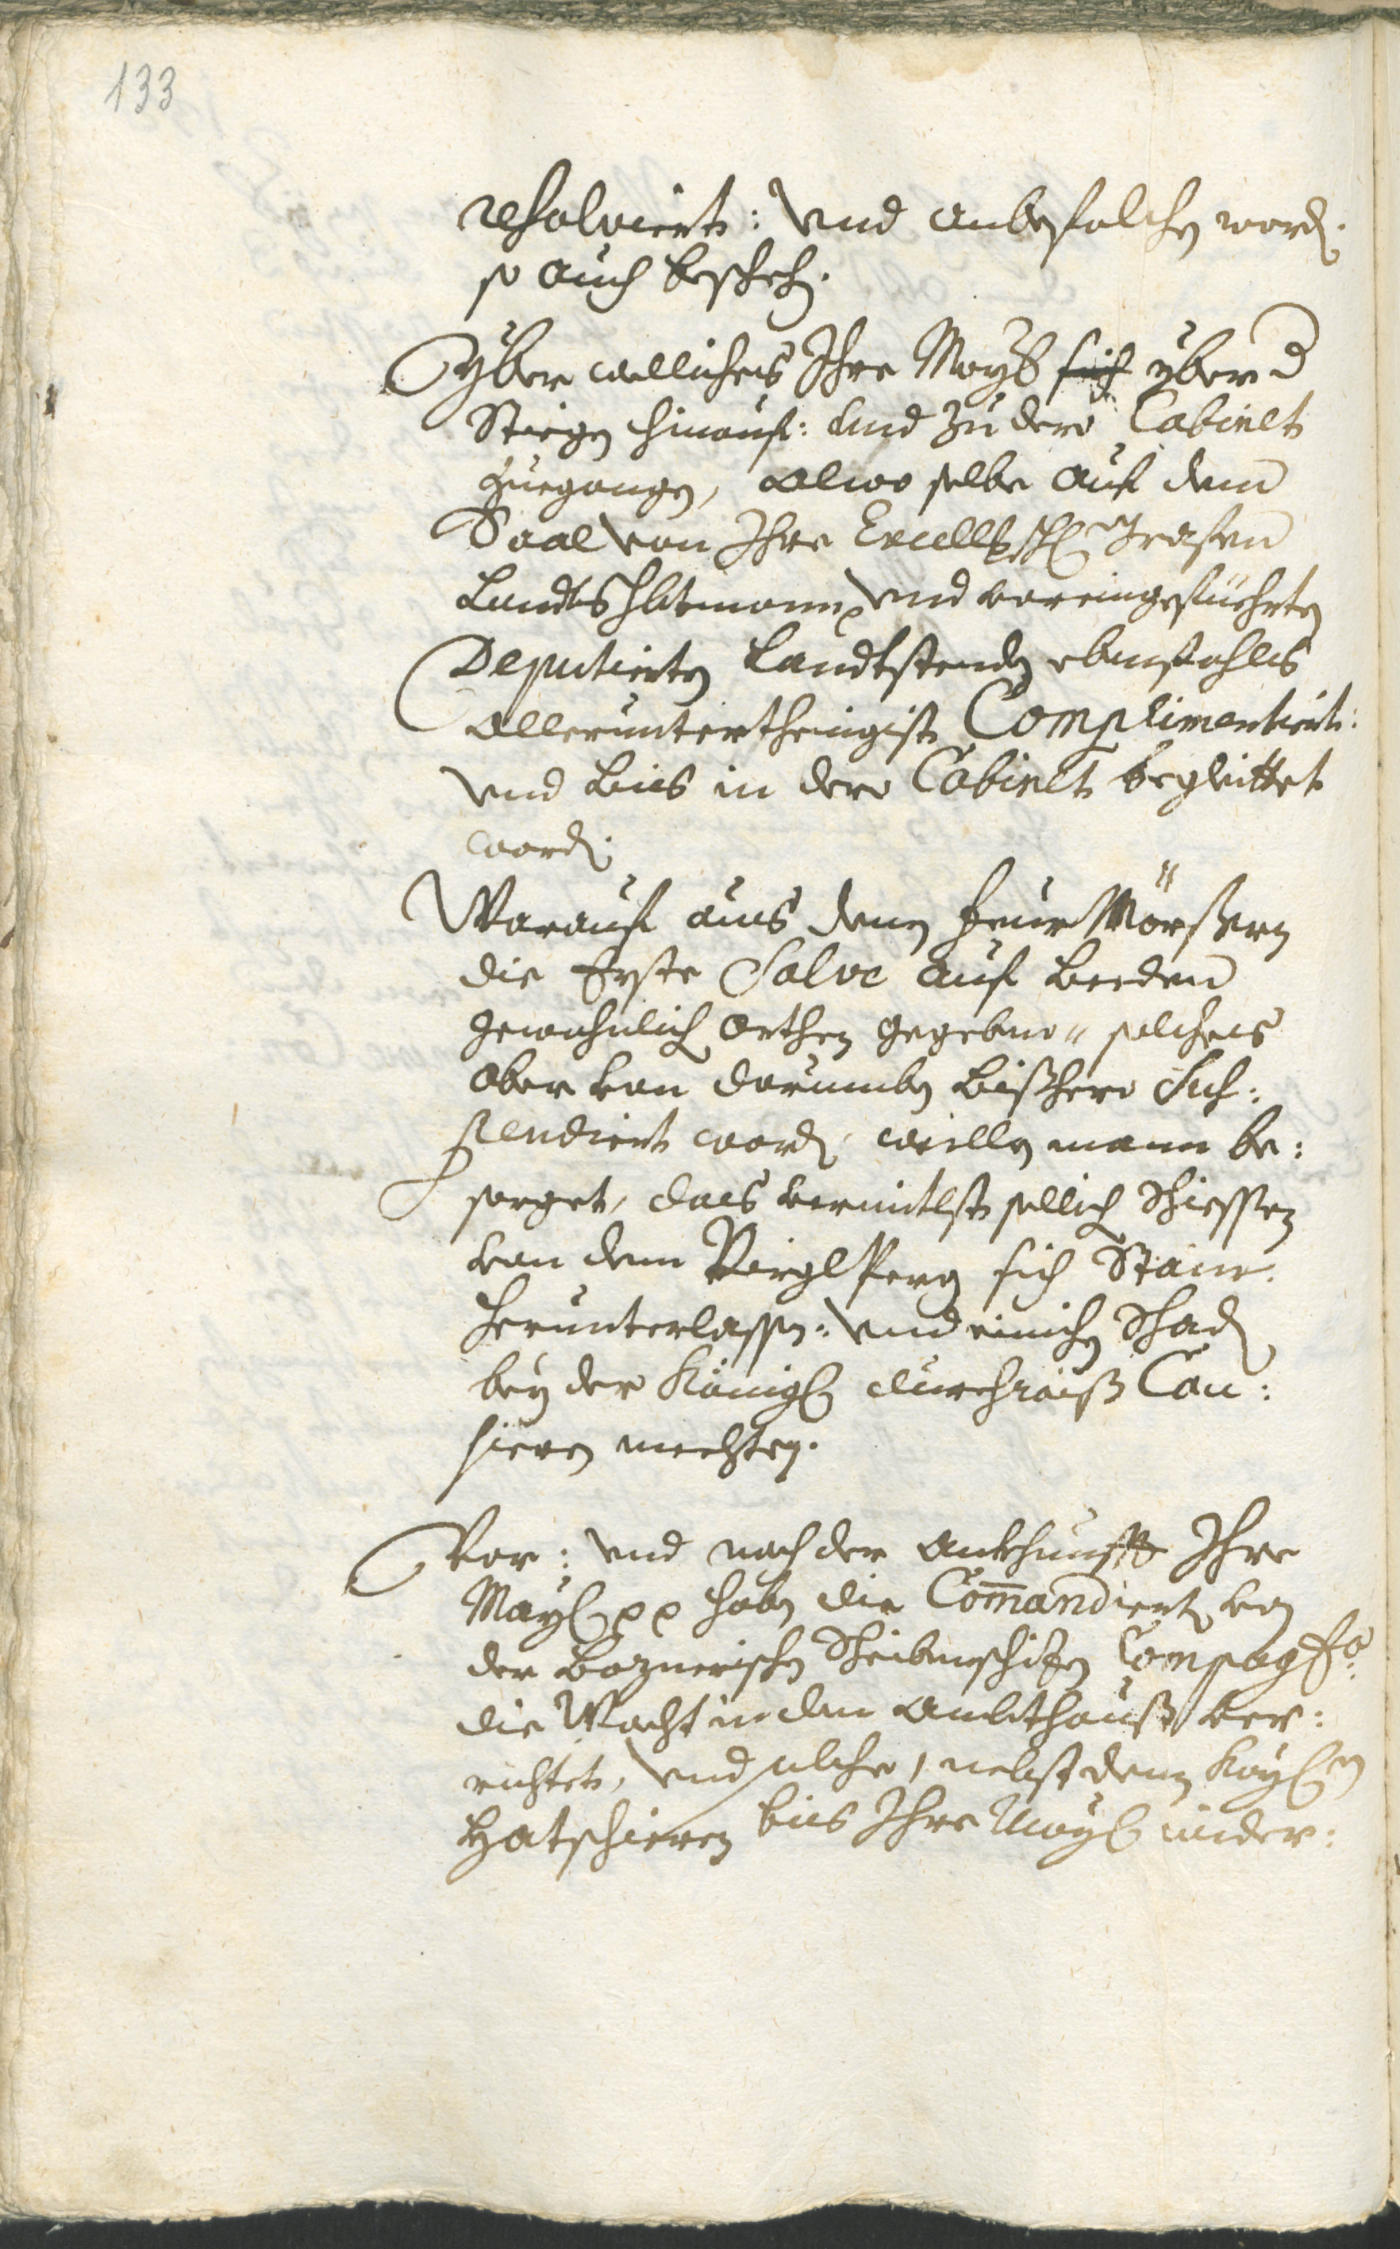 133
resolviert: Und anbefolchen word.
so auch beschehen.
Yber welliches Ihre Mays: sich yber d
Stiegen hinauf: und zu dero Cabinet
zuegangen, alwo selbe auf dem
Saal von Ihro Excell: H: Grafen
Landtshbtmann und voreingefüehrten
Deputierten Landtstenden ebenfahls
allerunterthenigist Complimentiert:
und bies in dero Cabinet begleittet
worden.
Warauf aus denen Feur Mörßern
die Erste Salve auf beeden
gewohnlich Orthen gegeben solches
aber von darumben bißhero Sus:
pendiert worden, weillen mann be:
sorget, das vermitlst sollich Schiessen
von dem Virgl Perg sich Stain
herunterlassen: und einichen Schaden
bey der Königl: durchraiß Cau:
sieren mechten.
Vor: und nach der ankhunfft Ihro
May: pp haben die Comandiert von
der Boznerischen Scheibenschizen Compag:
die Wacht in dem Ambthauß ver:
richtet, und solche, nebst denen Kay:en
Hatschieren bies Ihre May: wider: